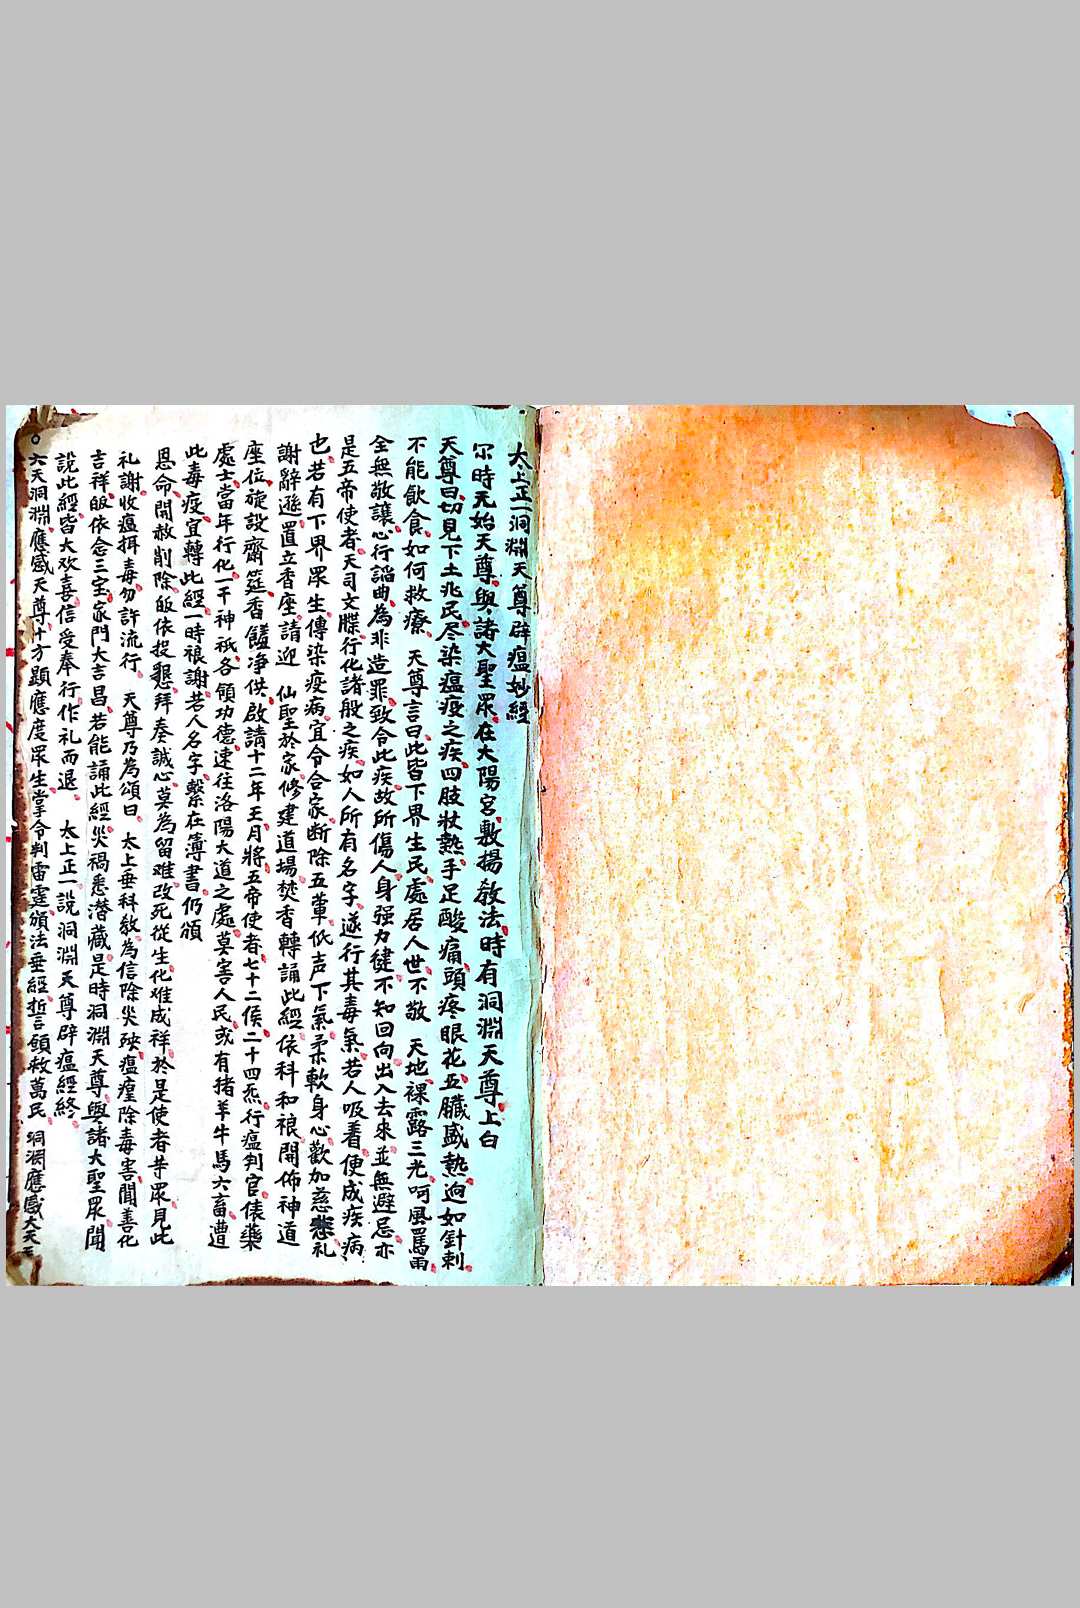 太上正一洞淵天尊辟瘟妙經
尔時无始天尊與諸大聖眾在大陽宮敷揚教法時有洞淵天尊上白
天尊曰切見下土兆民尽染瘟疫之疾四肢壮熱手足酸痛頭疼眼花五臟盛熱逈如針刺
不能飲食如何救療 天尊言曰此皆下界生民處居人世不敬 天地裸露三光呵風罵雨
全無敬讓心行謟曲為非造罪致令此疾故所傷人身强力健不知回向出入去來並無避忌亦
是五帝使者天司文牒行化諸般之疾如人所有名字遂行其毒氣若人吸着便成疾病
也若有下界眾生傳染疫病宜令合家断除五葷低声下氣柔軟身心歡加慈悲礼
謝辭遜置立香座請迎 仙聖於家修建道場焚香轉誦此經依科和禳開佈神道
座位旋設齋筵香饈净供啟請十二年王月將五帝使者七十二侯二十四炁行瘟判官俵藥
處士當年行化一干神祇各領功德速往洛陽大道之處莫害人民或有猪羊牛馬六畜遭
此毒疫宜轉此經一時禳謝若人名字繫在簿書仍頒
恩命開赦削除皈依投懇拜奏誠心莫為留难改死從生化难成祥於是使者等眾見此
礼謝收瘟捐毒勿許流行 天尊乃為頌曰 太上垂科教為信除災殃瘟瘽除毒害聞善化
吉祥皈依念三宝家門大吉昌若能誦此經災禍悉潜藏是時洞淵天尊與諸大聖眾聞
說此經皆大欢喜信受奉行作礼而退 太上正一說洞淵天尊辟瘟經終
六天洞淵應感天尊十方顕應度眾生掌令判雷霆頒法垂經誓願救萬民 洞淵應感大天王